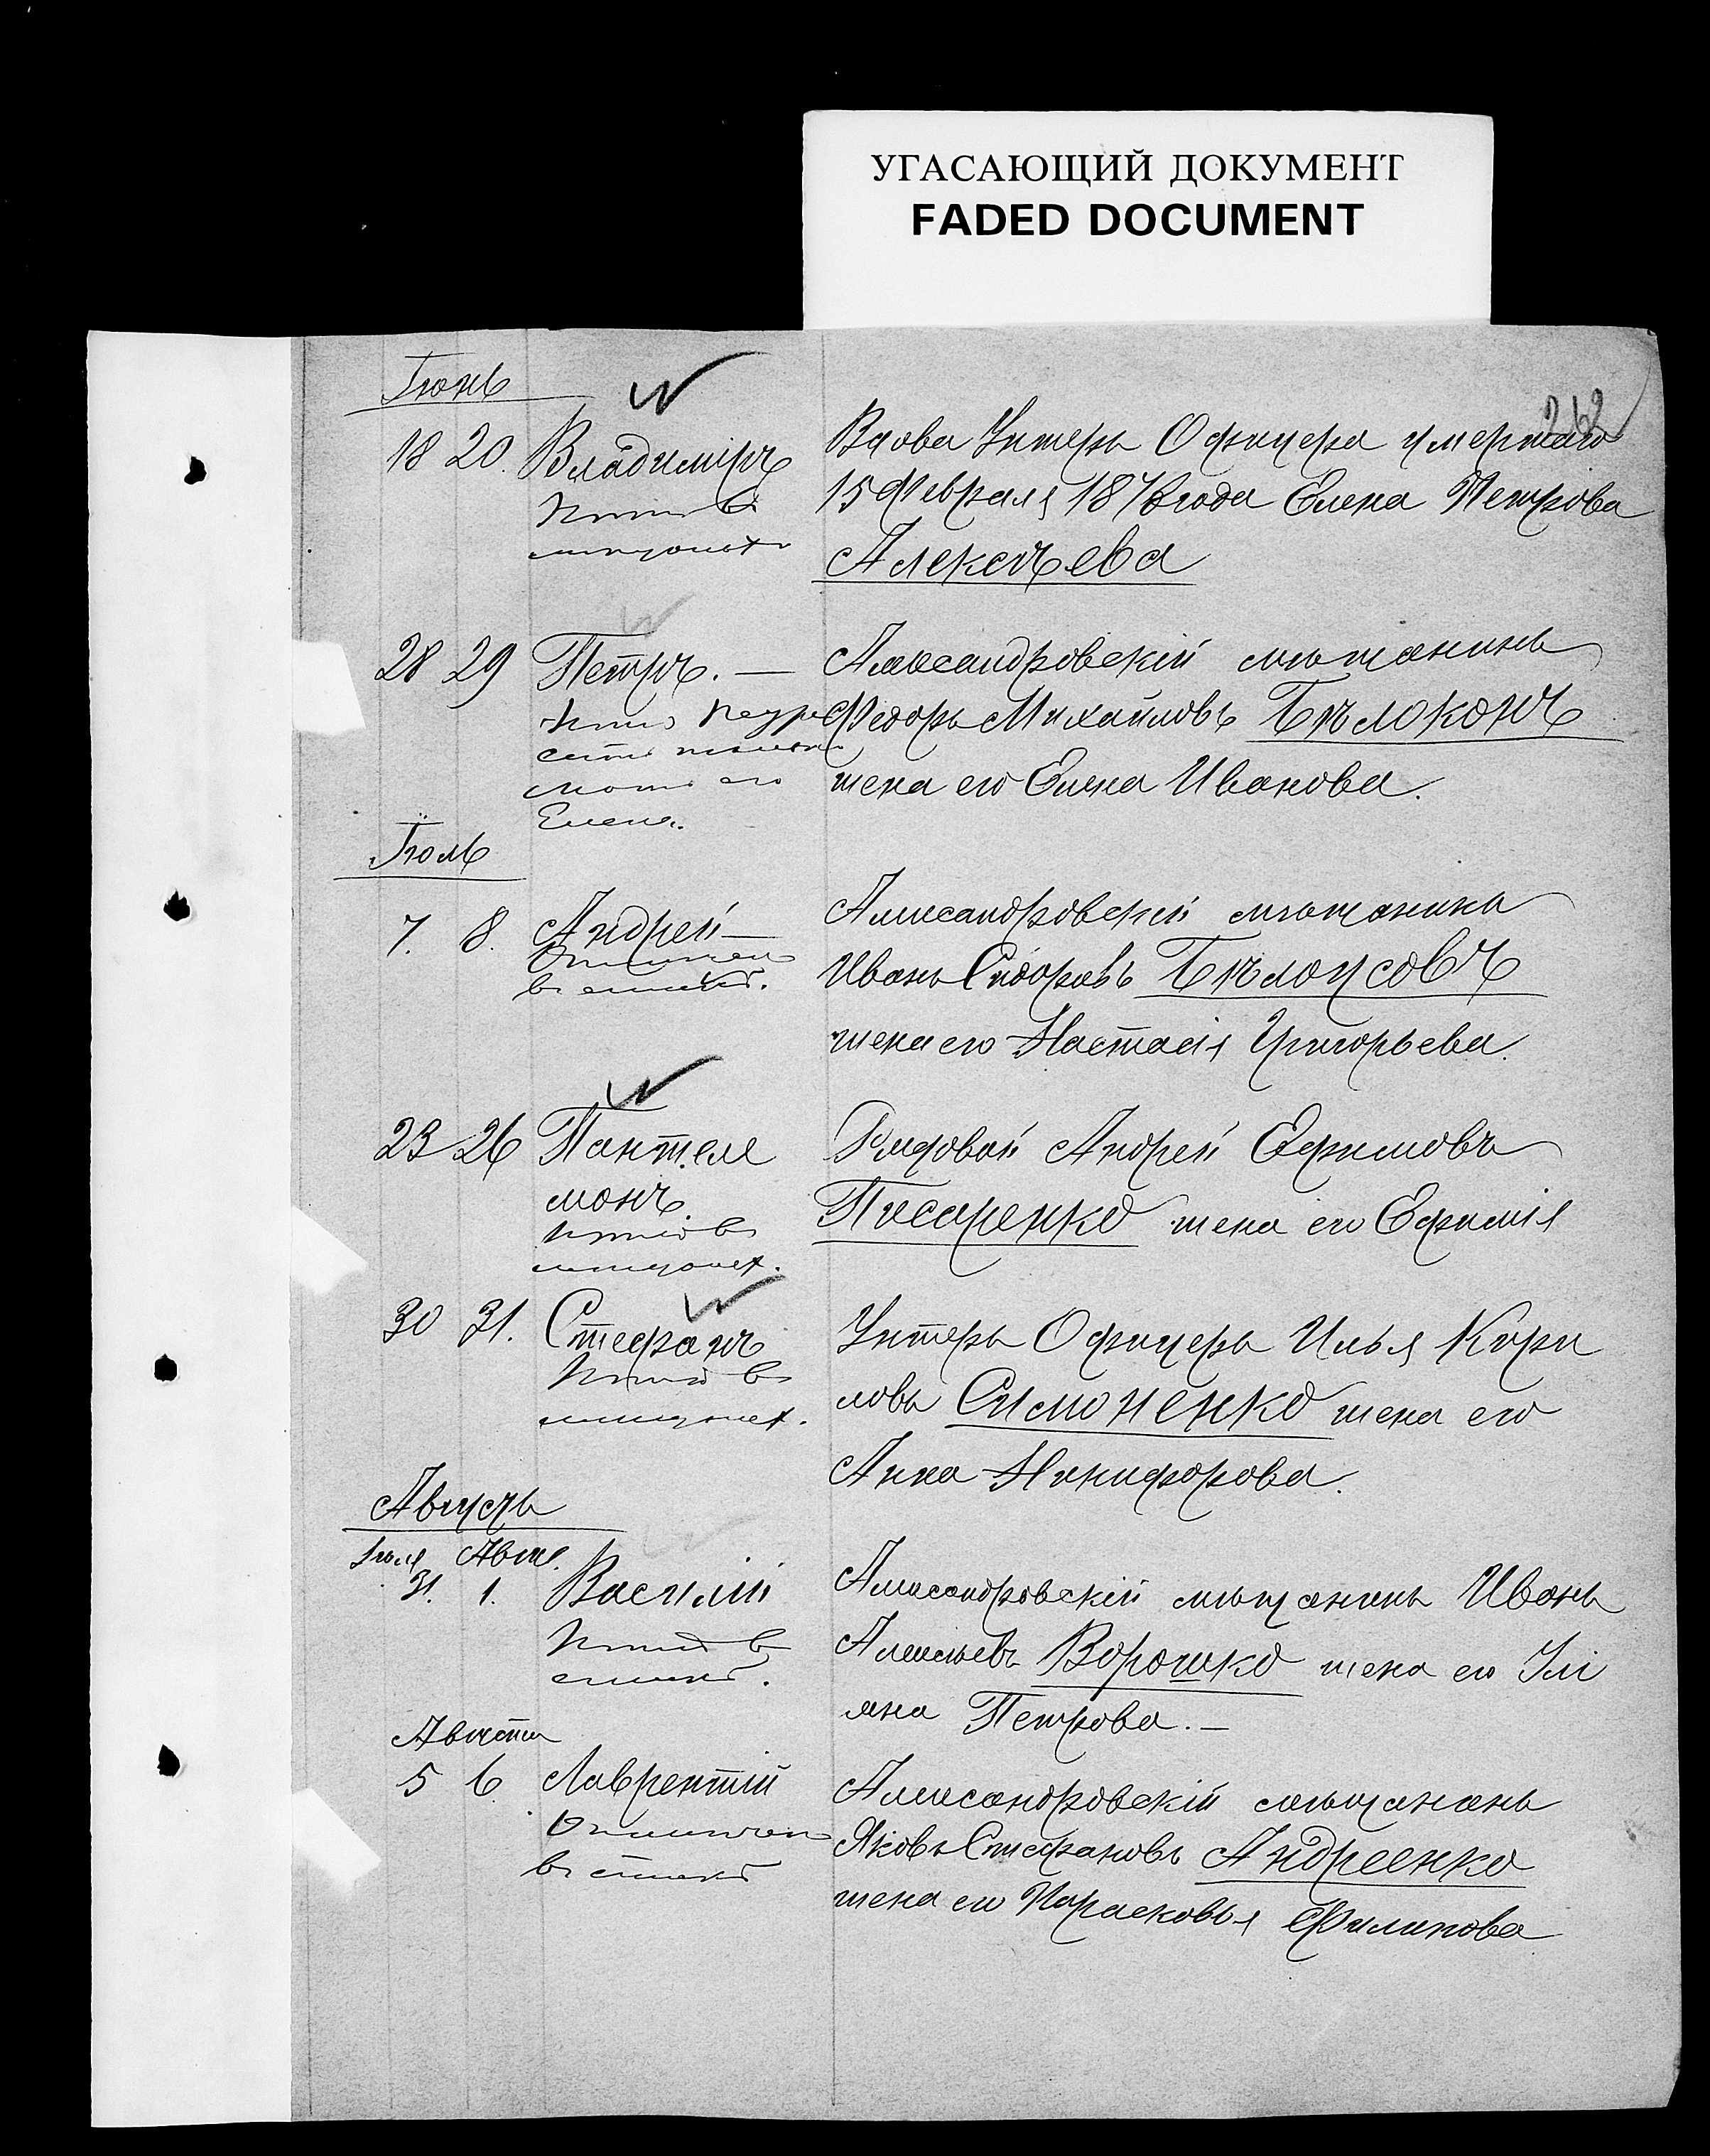 УГАСАЮЩИЙ ДОКУМЕНТ
FADED DOCUMENT
262
Іюнь
18 20. Владиміръ
Вдова Унтеръ Офицера умершаго
15 Февраля 1876 года Елена Петрова
Алексѣева
28 29 Петръ. —
Александровскій мѣщанинъ
Федоръ Михайловъ Бѣлоконъ
жена его Елена Иванова.
Елена.
Іюль
7. 8. Андрей —
Александровскій мѣщанинъ
Иванъ Сидоровъ Бѣлоусовъ
жена его Настасія Григорьева.
23 26 Пантеле
монъ
Рядовой Андрей Ефимовъ
Писаренко жена его Ефимія
30 31. Стефанъ
Унтеръ Офицеръ Илья Кири
ловъ Симоненко жена его
Анна Никифорова.
Августъ
Іюля Авг.
31. 1. Василій
Александровскій мѣщанинъ Иванъ
Алексѣевъ Ворошко жена его Улі
яна Петрова. —
Августа
5 6 Лаврентій
Александровскій мѣщанинъ
Яковъ Стефановъ Андреенко
жена его Парасковья Филипова